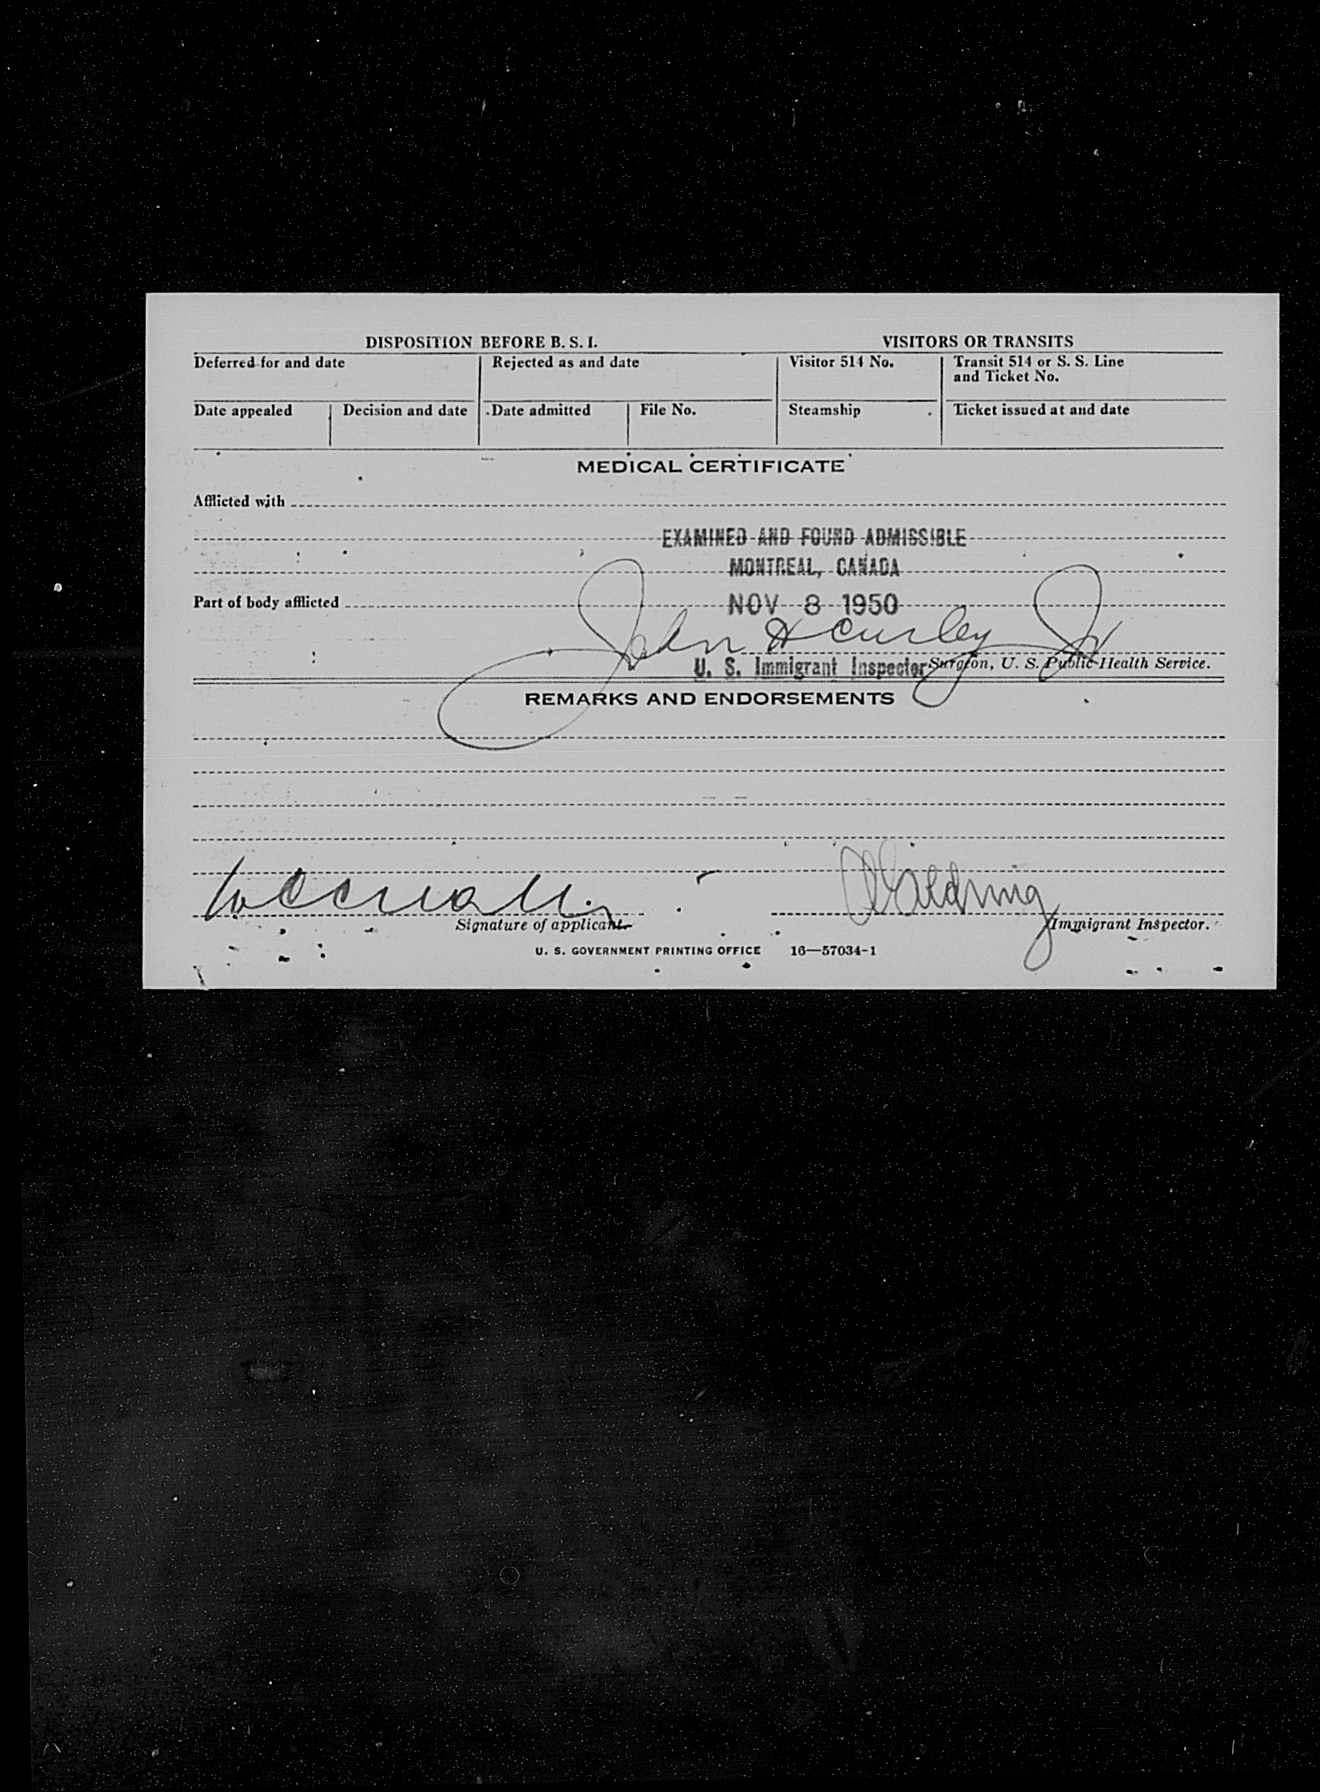 DISPOSITION BEFORE B. S. I.
VISITORS OR TRANSITS
Deferred for and date
Rejected as and date
Visitor 514 No.
Transit 514 or S. S. Line
and Ticket No.
Date appealed
Decision and date
Date admitted
File No.
Steamship
Ticket issued at and date
MEDICAL CERTIFICATE
Afflicted with
EXAMINED AND FOUND ADMISSIBLE
MONTREAL, CANADA
Part of body afflicted
NOV 8 1950
John H Curley Jr
U. S. Immigrant Inspector
Surgeon, U. S. Public Health Service.
REMARKS AND ENDORSEMENTS
Signature of applicant.
Immigrant Inspector.
U. S. GOVERNMENT PRINTING OFFICE 16—57034-1